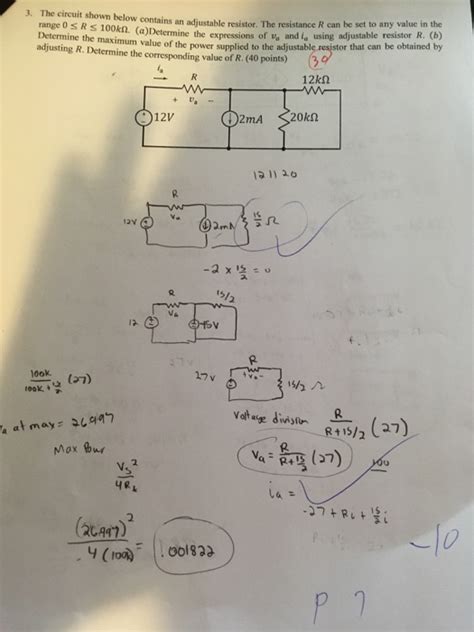 3. The circuit shown below contains an adjustable resistor. The resistance R can be set to any value in the
range 0 ≤ R ≤ 100kΩ. (a)Determine the expressions of vₐ and iₐ using adjustable resistor R. (b)
Determine the maximum value of the power supplied to the adjustable resistor that can be obtained by
adjusting R. Determine the corresponding value of R. (40 points)
30
iₐ
R
12kΩ
+ vₐ −
12V
2mA
20kΩ
12 11 20
R
Va
12V
2mA
15/2 Ω
-2 x 15/2 = 0
R
15/2
Va
12
15V
R
27V
+ Va -
15/2 Ω
100k / 100k + 15/2 (27)
Voltage division R / R+15/2 (27)
a at max = 26.997
Va = R / R+15/2 (27)
100
Max Pow
Vs² / 4RL
ia =
-27 + Ri + 15/2 i
(26.997)² / 4(100k) = .001822
-10
P 7